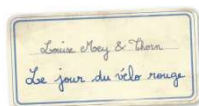 Louise Mey & Thorn
Le jour du vélo rouge